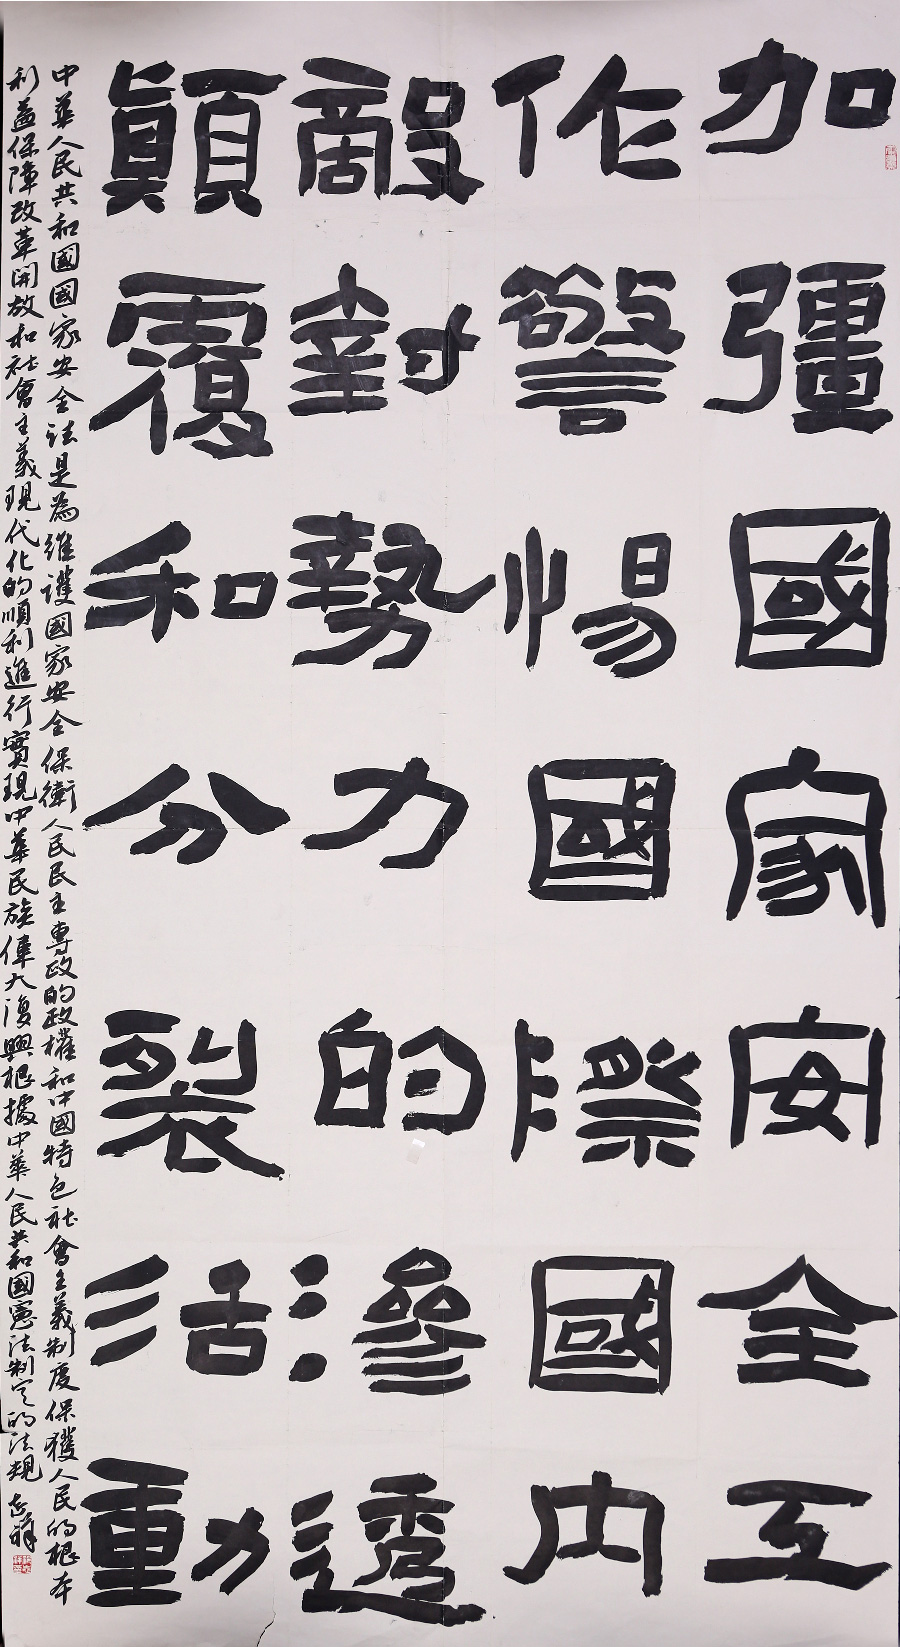 加彊國家安全工
作警惕國際國内
敵對勢力的滲透
顛覆和分裂活動
中華人民共和國國家安全法是為維護國家安全保衛人民民主專政的政權和中國特色社會主義制度保獲人民的根本
利益保障改革開放和社會主義現代化的順利進行實現中華民族偉大復興根據中華人民共和國憲法制定的法規 志祥